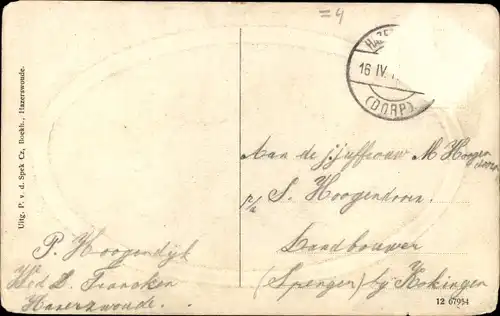 =4
HAZE
16 IV.
(DORP)
Uitg. P. v. d. Spek Cz., Boekh., Hazerswoude.
Aan de jjuffrouw M Hoogen
doorn
p/a S. Hoogendoorn
Landbouwer
(Spengen) bij Kokingen
P. Hoogendijk
Wed D. Francken
Hazerswoude.
12 67954